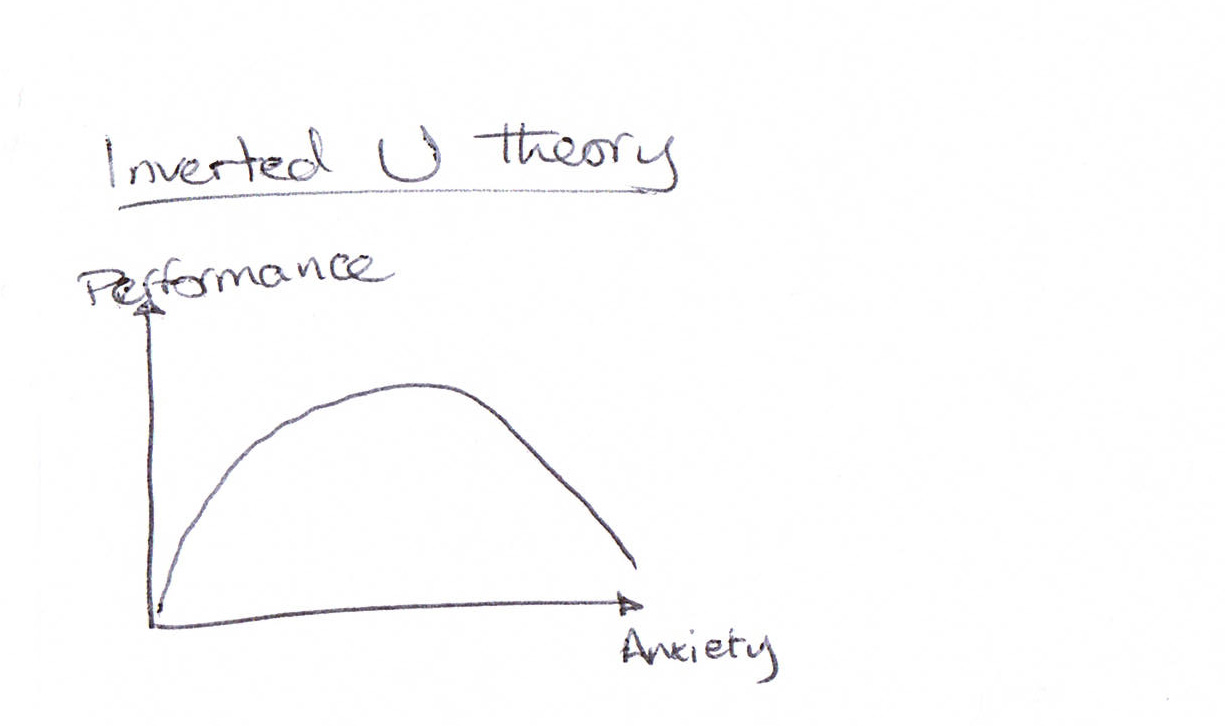 Inverted U theory
Performance
Anxiety